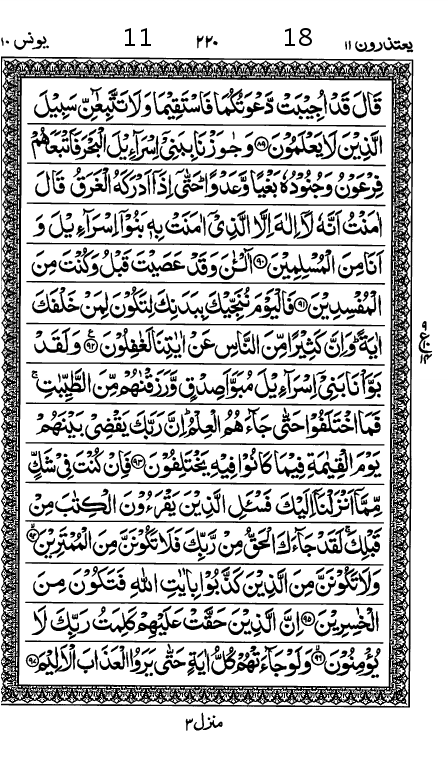 یعتذرون ۱۱ 18 ۲۲۰ 11 یونس ۱۰
قَالَ قَدْ اُجِیْبَتْ دَّعْوَتُكُمَا فَاسْتَقِیْمَا وَلَا تَتَّبِعٰٓنِّ سَبِیْلَ
الَّذِیْنَ لَا یَعْلَمُوْنَ ﴿۸۹﴾ وَجٰوَزْنَا بِبَنِیْۤ اِسْرَآءِیْلَ الْبَحْرَ فَاَتْبَعَهُمْ
فِرْعَوْنُ وَجُنُوْدُهٗ بَغْیًا وَّعَدْوًا ؕ حَتّٰۤی اِذَاۤ اَدْرَكَهُ الْغَرَقُ ۙ قَالَ
اٰمَنْتُ اَنَّهٗ لَاۤ اِلٰهَ اِلَّا الَّذِیْۤ اٰمَنَتْ بِهٖ بَنُوْۤا اِسْرَآءِیْلَ وَ
اَنَا مِنَ الْمُسْلِمِیْنَ ﴿۹۰﴾ آٰلْـٰٔنَ وَقَدْ عَصَیْتَ قَبْلُ وَكُنْتَ مِنَ
الْمُفْسِدِیْنَ ﴿۹۱﴾ فَالْیَوْمَ نُنَجِّیْكَ بِبَدَنِكَ لِتَكُوْنَ لِمَنْ خَلْفَكَ
اٰیَةً ؕ وَاِنَّ كَثِیْرًا مِّنَ النَّاسِ عَنْ اٰیٰتِنَا لَغٰفِلُوْنَ ﴿۹۲﴾ وَلَقَدْ
بَوَّاْنَا بَنِیْۤ اِسْرَآءِیْلَ مُبَوَّاَ صِدْقٍ وَّرَزَقْنٰهُمْ مِّنَ الطَّیِّبٰتِ ۚ
فَمَا اخْتَلَفُوْا حَتّٰی جَآءَهُمُ الْعِلْمُ ؕ اِنَّ رَبَّكَ یَقْضِیْ بَیْنَهُمْ
یَوْمَ الْقِیٰمَةِ فِیْمَا كَانُوْا فِیْهِ یَخْتَلِفُوْنَ ﴿۹۳﴾ فَاِنْ كُنْتَ فِیْ شَكٍّ
مِّمَّاۤ اَنْزَلْنَاۤ اِلَیْكَ فَسْـَٔلِ الَّذِیْنَ یَقْرَءُوْنَ الْكِتٰبَ مِنْ
قَبْلِكَ ۚ لَقَدْ جَآءَكَ الْحَقُّ مِنْ رَّبِّكَ فَلَا تَكُوْنَنَّ مِنَ الْمُمْتَرِیْنَ ﴿۹۴﴾
وَلَا تَكُوْنَنَّ مِنَ الَّذِیْنَ كَذَّبُوْا بِاٰیٰتِ اللّٰهِ فَتَكُوْنَ مِنَ
الْخٰسِرِیْنَ ﴿۹۵﴾ اِنَّ الَّذِیْنَ حَقَّتْ عَلَیْهِمْ كَلِمَتُ رَبِّكَ لَا
یُؤْمِنُوْنَ ﴿۹۶﴾ وَلَوْ جَآءَتْهُمْ كُلُّ اٰیَةٍ حَتّٰی یَرَوُا الْعَذَابَ الْاَلِیْمَ ﴿۹۷﴾
۹
ع
۱۴
منزل ۳